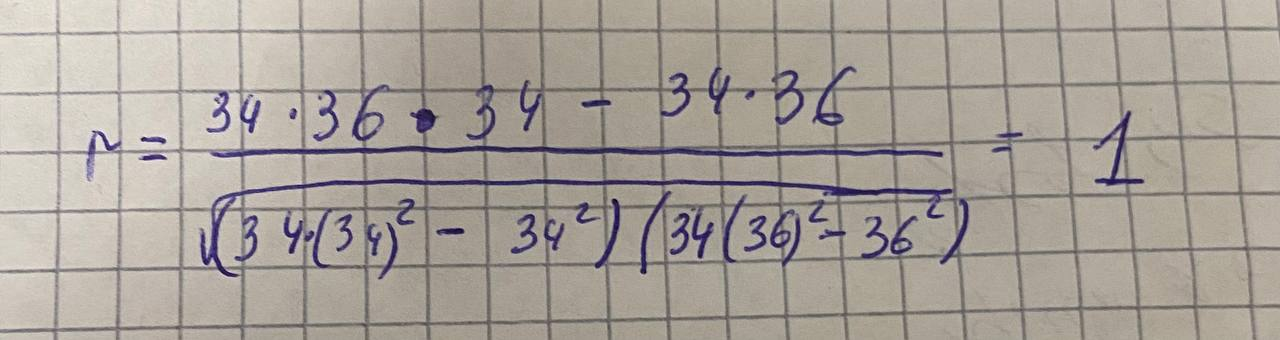 r = \frac{34 \cdot 36 \cdot 34 - 34 \cdot 36}{\sqrt{(34 \cdot (34)^2 - 34^2)(34(36)^2 - 36^2)}} = 1